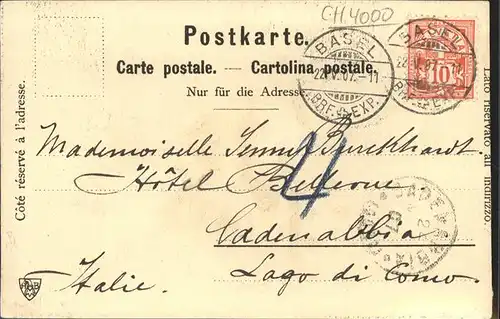 CH.4000
Postkarte.
Carte postale. — Cartolina postale.
Nur für die Adresse.
BASEL
22.V.07.-11
BRF.EXP.
BASEL
22.V.07
BRF.EXP.
10
Côté réservé à l'adresse.
Lato riservato all'indirizzo.
Mademoiselle Jenny Burckhardt.
Hôtel Bellevue
4
Cadenabbia
Italie.
Lago di Como.